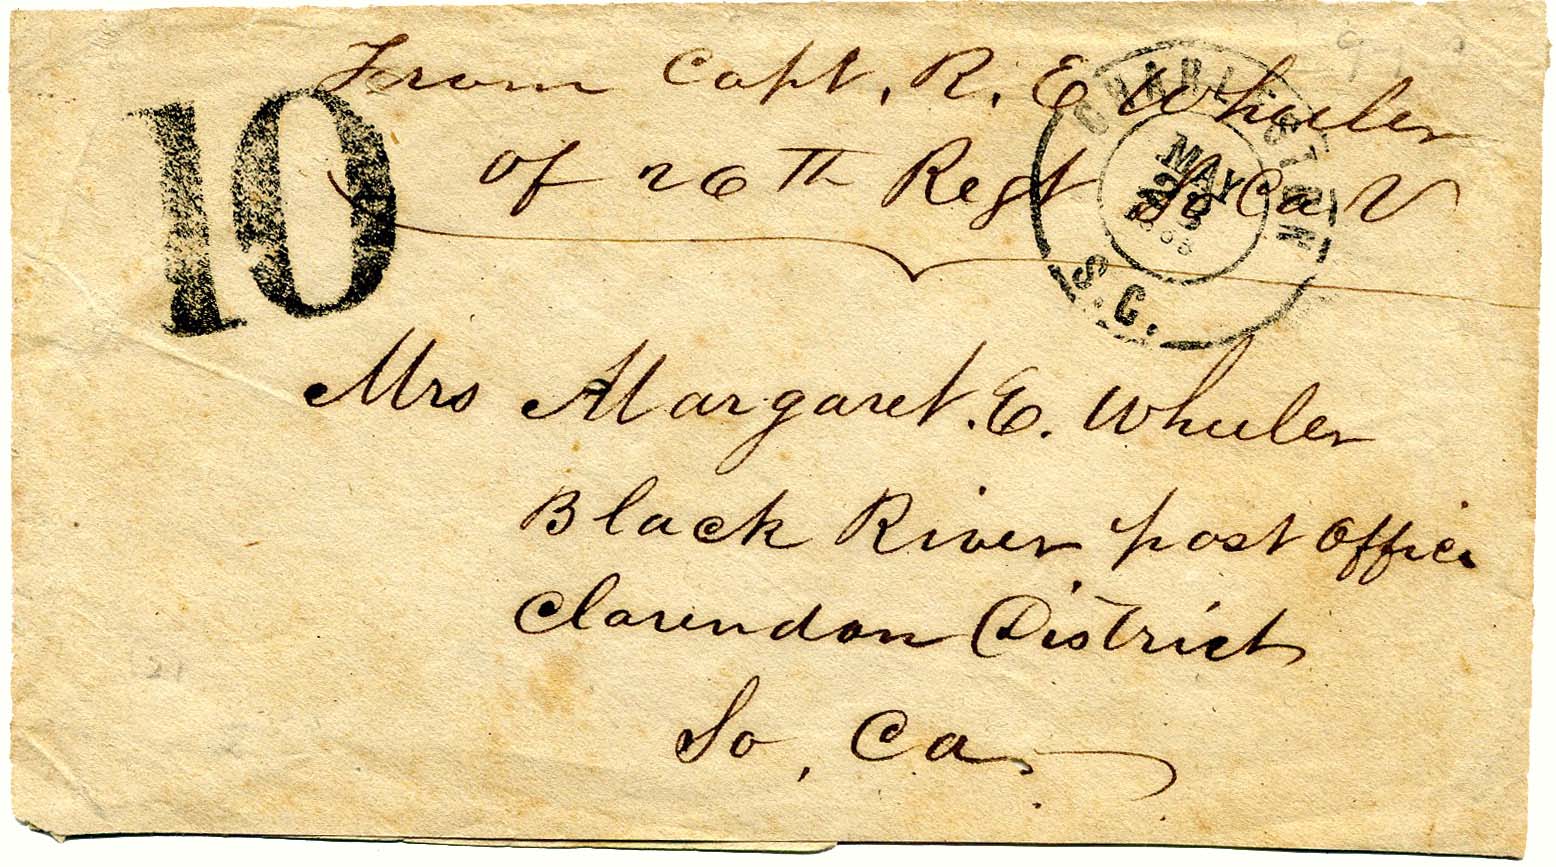 From Capt. R. E Wheeler
of 26Th Regt So Ca V
10
CHARLESTON
S.C.
MAY
Mrs Margaret. E. Wheeler
Black River post office
Clarendon District
So, Ca.
21